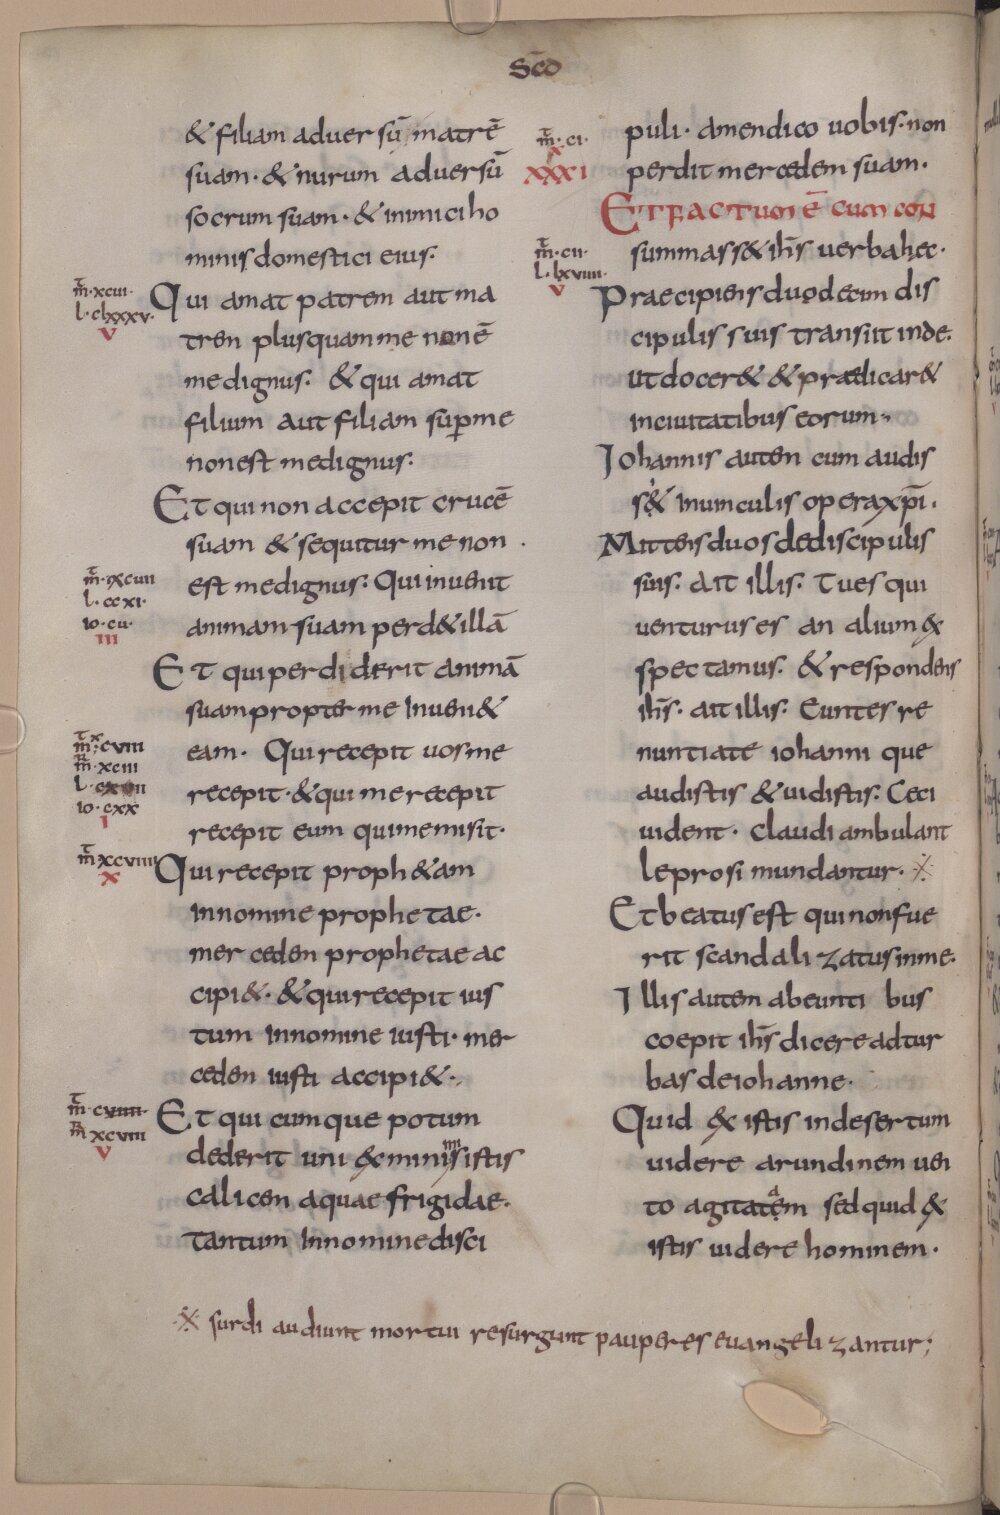 Scđ
& filiam aduersū matrē
suam · & nurum aduersū
socrum suam · & inimici ho
minis domestici eius ·
m̄ · xcui ·
l · clxxxv ·
v
Qui amat patrem aut ma
trem plusquam me non ē
me dignus · & qui amat
filium aut filiam sup̄ me
non est me dignus ·
Et qui non accepit crucē
suam & sequitur me non
m̄ · xcuii
l · ccxi ·
io · cu ·
iii
est me dignus · Qui inuenit
animam suam perd& illā
Et qui perdiderit animā
suam propter me inueni&
m̄ · cuiii
m̄ · xciii
io · cxx
i
eam · Qui recepit uos me
recepit · & qui me recepit
recepit eum qui me misit ·
m̄ xcuiiii
x
Qui recepit proph&am
in nomine prophetae ·
merceden prophetae ac
cipi& · & qui recepit ius
tum in nomine iusti · mer
ceden iusti accipi& ·
m̄ · cuiiii ·
m̄ xcuiii
v
Et quicumque potum
dederit uni ex minimis istis
calicen aquae frigidae ·
tantum in nomine disci
m̄ · ci ·
x
xxxi
puli · amen dico uobis · non
perdit mercedem suam ·
Et factum ē cum con
m̄ · cii ·
l · lxuiiii ·
v
summass& ih̄s uerba hec ·
Praecipiens duodecim dis
cipulis suis transiit inde ·
ut docer& & praedicar&
in ciuitatibus eorum ·
Iohannis autem cum audis
s& in uinculis opera xp̄i ·
Mittens duos de discipulis
suis · ait illis · Tu es qui
uenturus es an alium ex
spectamus · & respondens
ih̄s · ait illis · Euntes re
nuntiate iohanni que
audistis & uidistis · Ceci
uident · claudi ambulant
leprosi mundantur · ※
Et beatus est qui non fue
rit scandalizatus in me ·
Illis autem abeunti bus
coepit ih̄s dicere ad tur
bas de iohanne ·
Quid ex istis in desertum
uidere arundinem uen
to agitatam sed quid ex
istis uidere hominem ·
※ surdi audiunt mortui resurgunt pauperes euangelizantur ;